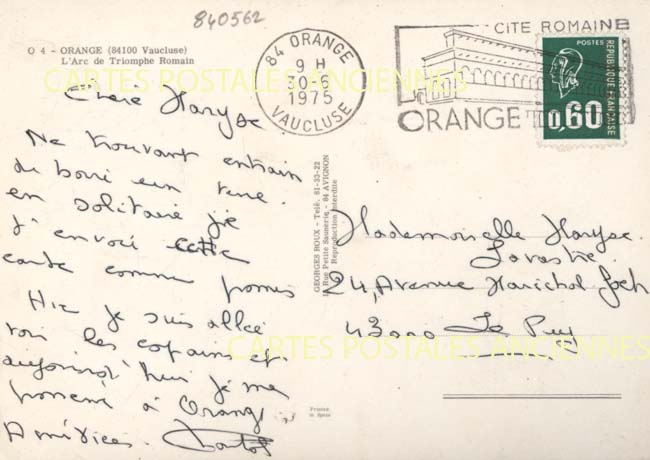 840562
O 4 - ORANGE (84100 Vaucluse)
L'Arc de Triomphe Romain
84 ORANGE
9 H
30-6
1975
VAUCLUSE
CITE ROMAINE
ORANGE
POSTES
REPUBLIQUE FRANÇAISE
0,60
CARTES POSTALES ANCIENNES
Chère Maryse
Me trouvant entrain
de boire un
en solitaire je
t'envoie cette
carte comme promis
Hier je suis allée
voir les copains et
aujourd'hui je me
promène à Orange
Amitiées.
GEORGES ROUX - Télé. 81-33-22
18, Rue Petite Saunerie - 84 AVIGNON
Reproduction interdite
Mademoiselle Maryse
24, Avenue Maréchal Foch
43000 Le Puy
CARTES POSTALES ANCIENNES
Printed
in Spain